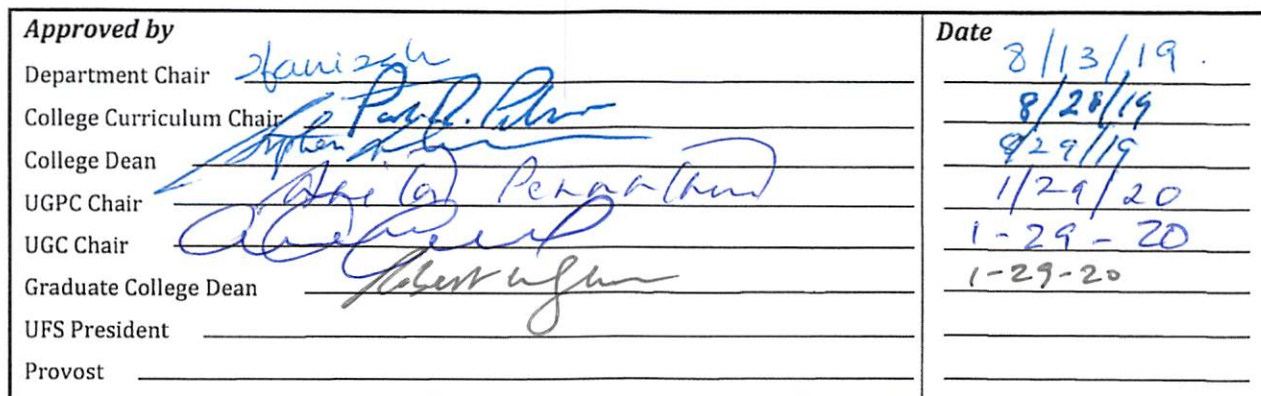 Approved by Date
Department Chair 8/13/19
College Curriculum Chair 8/28/19
College Dean Stephen 8/29/19
UGPC Chair 1/29/20
UGC Chair 1-29-20
Graduate College Dean Robert 1-29-20
UFS President
Provost